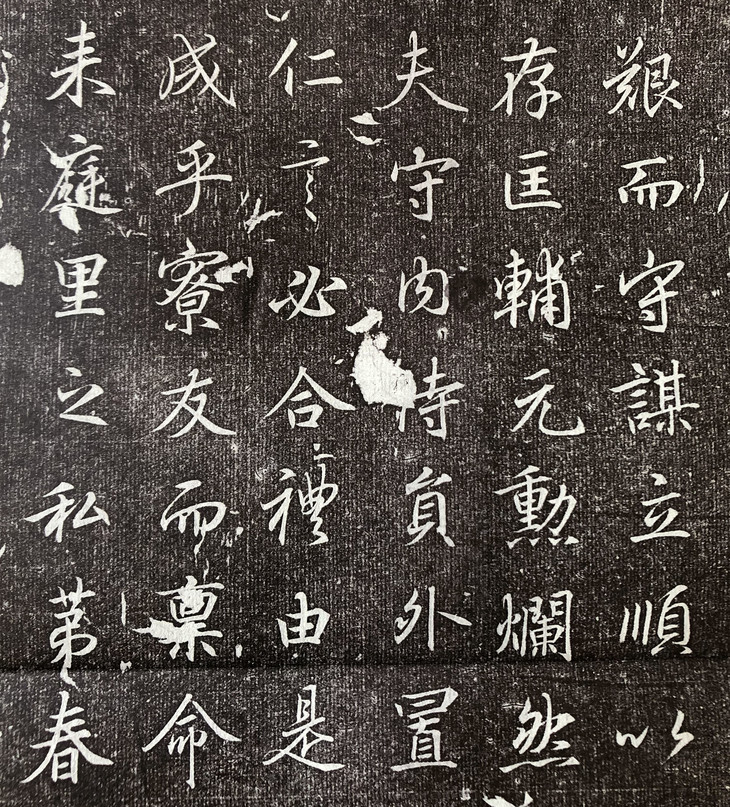 艱而守謀立順以
存匡輔元勳爛然
夫守内侍員外置
仁言必合禮由是
成乎寮友而稟命
来庭里之私第春